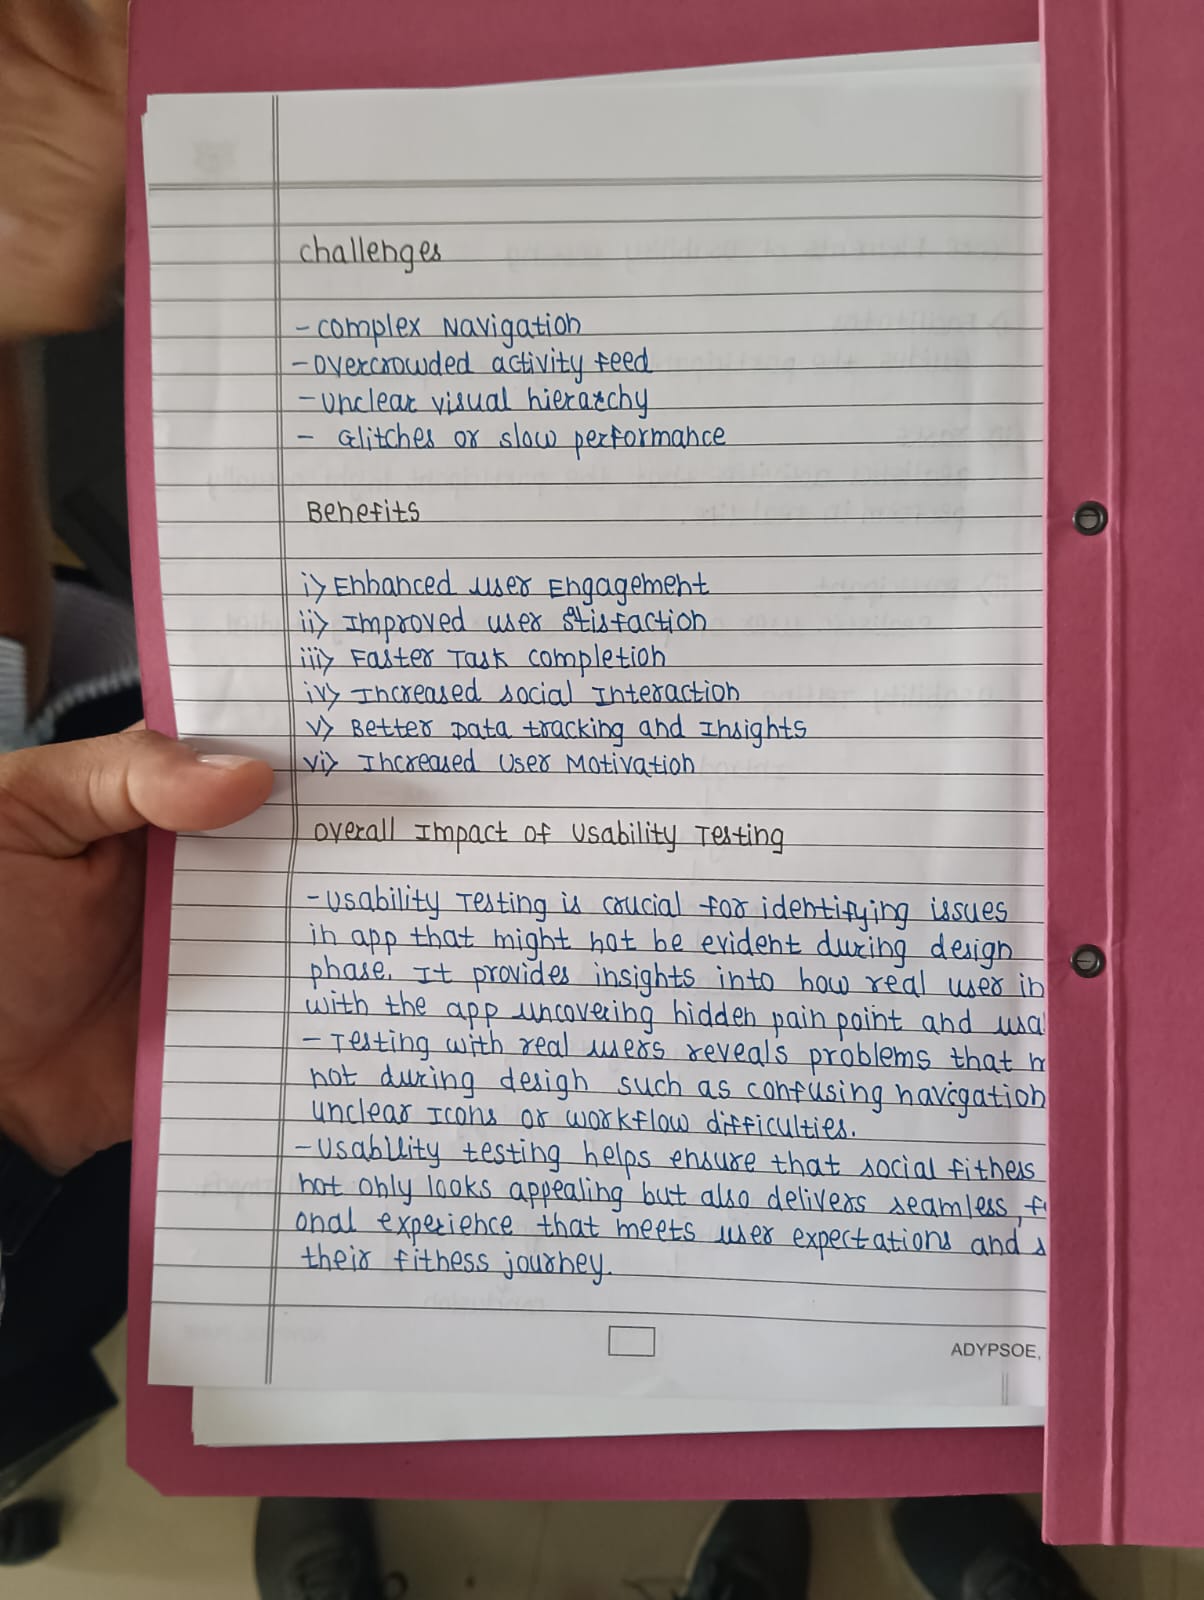 Challenges
- Complex Navigation
- Overcrowded activity feed
- Unclear visual hierarchy
- Glitches or slow performance
Benefits
i) Enhanced user Engagement
ii) Improved user Satisfaction
iii) Faster Task completion
iv) Increased social Interaction
v) Better Data tracking and Insights
vi) Increased User Motivation
Overall Impact of Usability Testing
- Usability Testing is crucial for identifying issues
in app that might not be evident during design
phase. It provides insights into how real user in
with the app uncovering hidden pain point and usa
- Testing with real users reveals problems that m
not during design such as confusing navigation
unclear Icons or workflow difficulties.
- Usability testing helps ensure that social fitness
not only looks appealing but also delivers seamless, f
onal experience that meets user expectations and s
their fitness journey.
ADYPSOE,